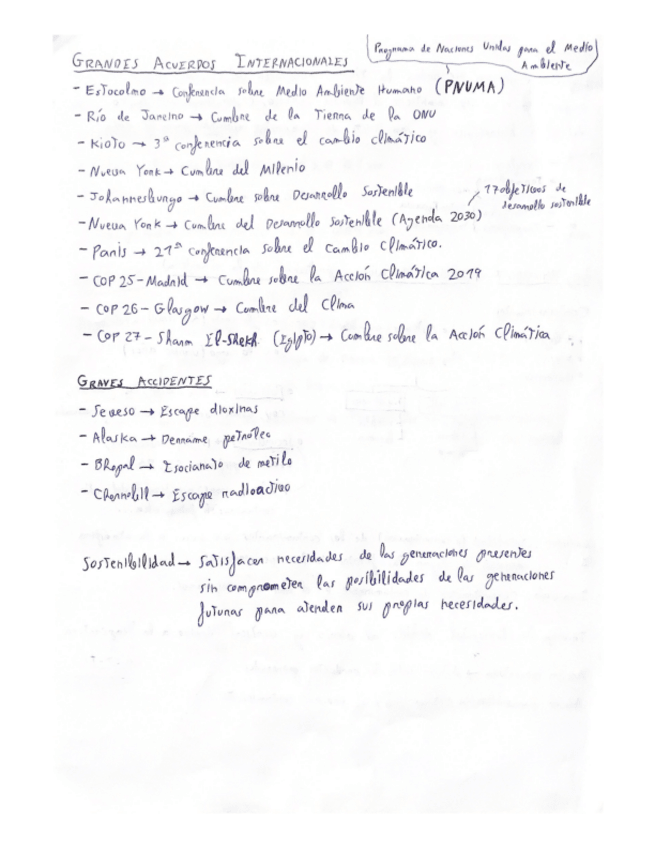 Programa de Naciones Unidas para el Medio
Ambiente
GRANDES ACUERDOS INTERNACIONALES
- Estocolmo → Conferencia sobre Medio Ambiente Humano (PNUMA)
- Río de Janeiro → Cumbre de la Tierra de la ONU
- Kioto → 3ª conferencia sobre el cambio climático
- Nueva York → Cumbre del Milenio
- Johannesburgo → Cumbre sobre Desarrollo Sostenible
17 objetivos de
desarrollo sostenible
- Nueva York → Cumbre del Desarrollo Sostenible (Agenda 2030)
- París → 21ª conferencia sobre el Cambio Climático.
- COP 25 - Madrid → Cumbre sobre la Acción Climática 2019
- COP 26 - Glasgow → Cumbre del Clima
- COP 27 - Sharm El-Shekh (Egipto) → Cumbre sobre la Acción Climática
GRAVES ACCIDENTES
- Seveso → Escape dioxinas
- Alaska → Derrame petróleo
- Bhopal → Isocianato de metilo
- Chernobill → Escape radioactivo
Sostenibilidad → Satisfacer necesidades de las generaciones presentes
sin comprometer las posibilidades de las generaciones
futuras para atender sus propias necesidades.